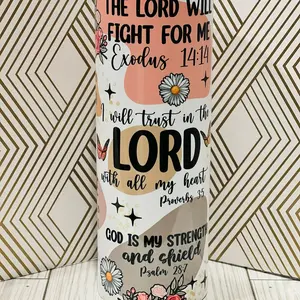 THE LORD WILL
FIGHT FOR ME
Exodus 14:14
I will trust in the
LORD
with all my heart
Proverbs 3:5
GOD IS MY STRENGTH
and shield
Psalm 28:7